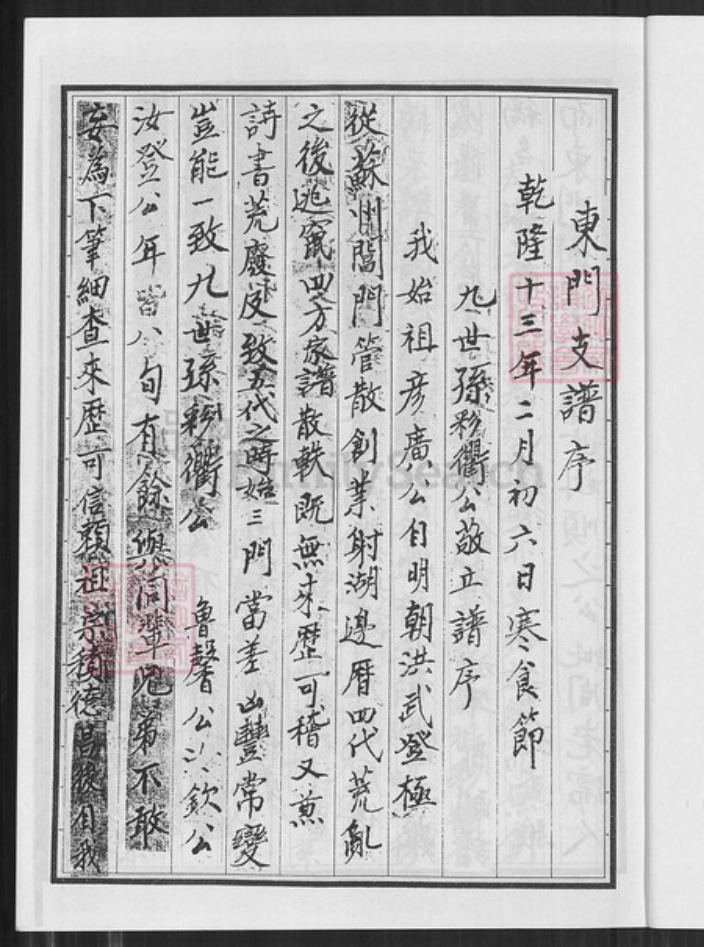 東門支譜序
乾隆十三年二月初六日寒食節
九世孫彩衢公敬立譜序
我始祖彦廣公自明朝洪武登極
從蘇州閶門管散創業射湖邊曆四代荒亂
之後逃竄四方家譜散軼既無來歷可稽又兼
詩書荒廢及致五代之時始三門當差凶豐常變
豈能一致九世孫彩衢公 魯馨公 欽公
汝登公年皆八旬有餘與同輩兄弟不敢
妄為下筆細查來歷可信賴祖宗積德昌後自我
FamilySearch